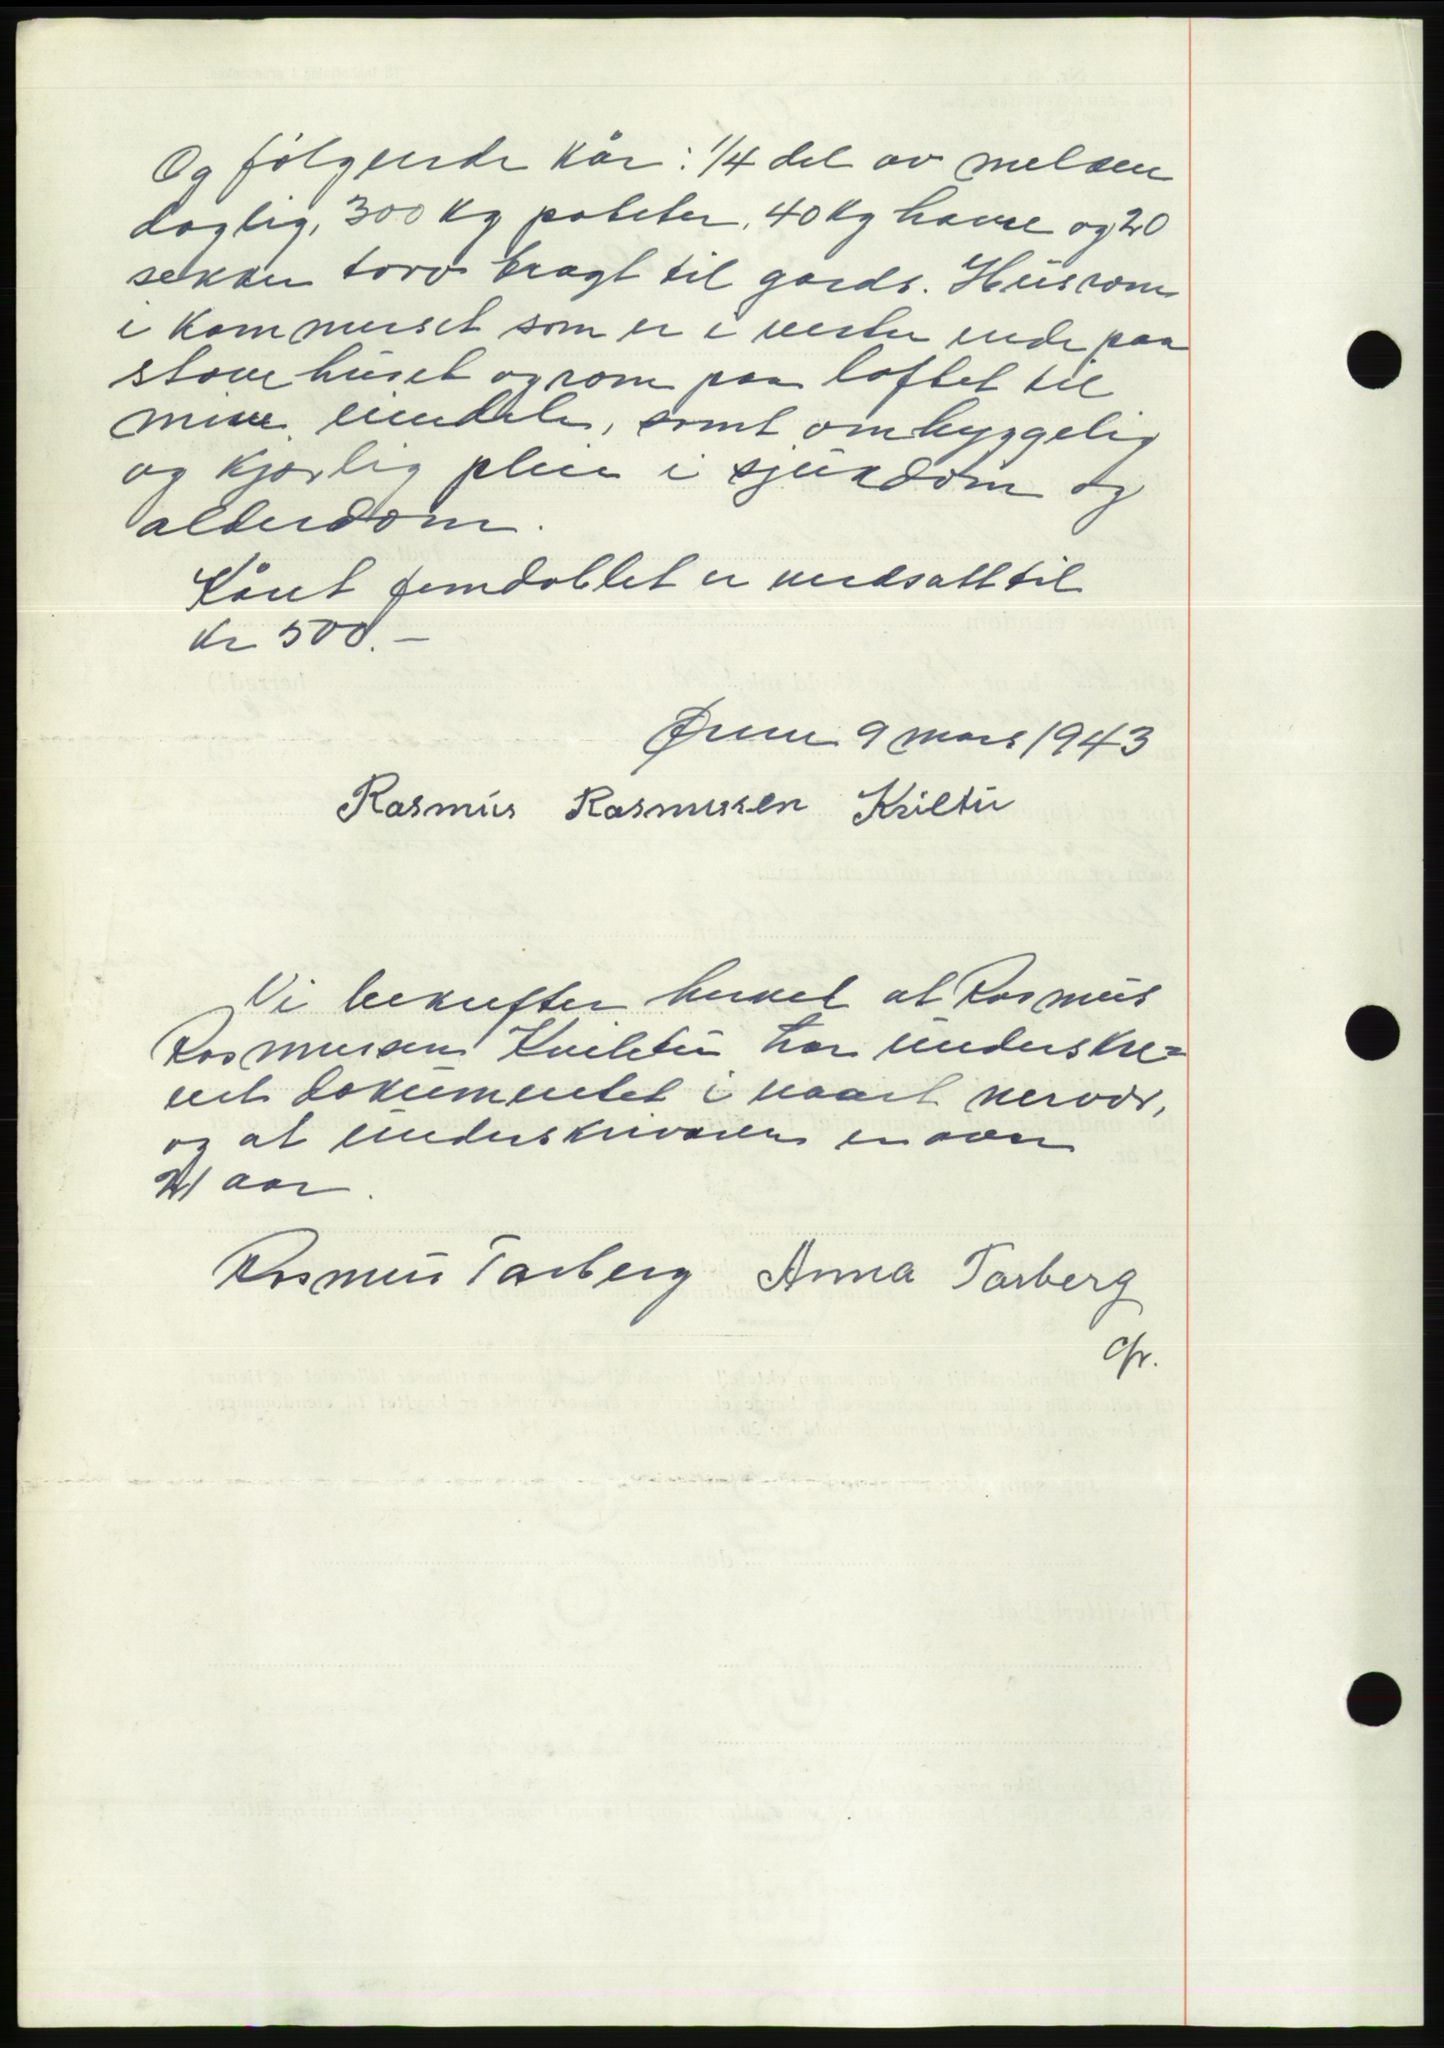 Og følgende kår: 1/4 del av melken
daglig, 300 kg poteter, 40 kg havre og 20
sekker torv bragt til gards. Husrom
i kammerset som er i vester ende paa
stovehuset og rom paa loftet til
mine eiendele, samt omhyggelig
og kjærlig pleie i sjukdom og
alderdom.
Kåret femdoblet er verdsatt til
kr 500.-
9 mars 1943
Rasmus Rasmussen
Vi bekrefter herved at Rasmus
Rasmussen har underskre=
vet dokumentet i vaart nervær,
og at underskriveren er over
21 aar.
Rasmus Tarberg Anna Tarberg